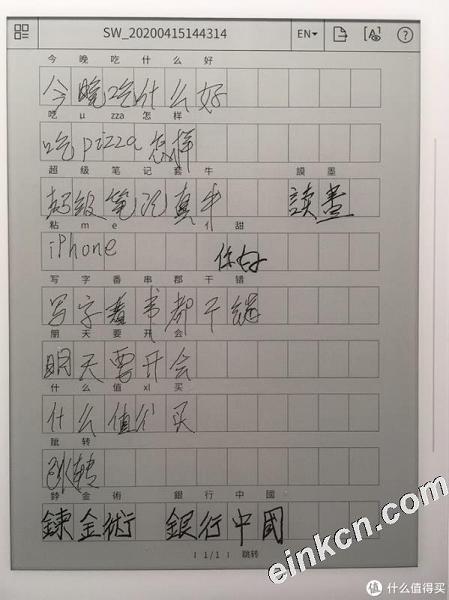 SW_20200415144314 EN
今晚吃什么好
今晚吃什么好
吃 u zza 怎样
吃pizza怎样
超级笔记套牛 讀墨
超级笔记真牛 讀書
粘 m e 什甜
iPhone 你好
写字番串郡干错
写字看书都干错
朋天要开会
明天要开会
什么值 xl 买
什么值得买
跳转
跳转
錊金術 銀行中國
鍊金術 銀行中國
1/1 跳转
einkcn.com
值 什么值得买